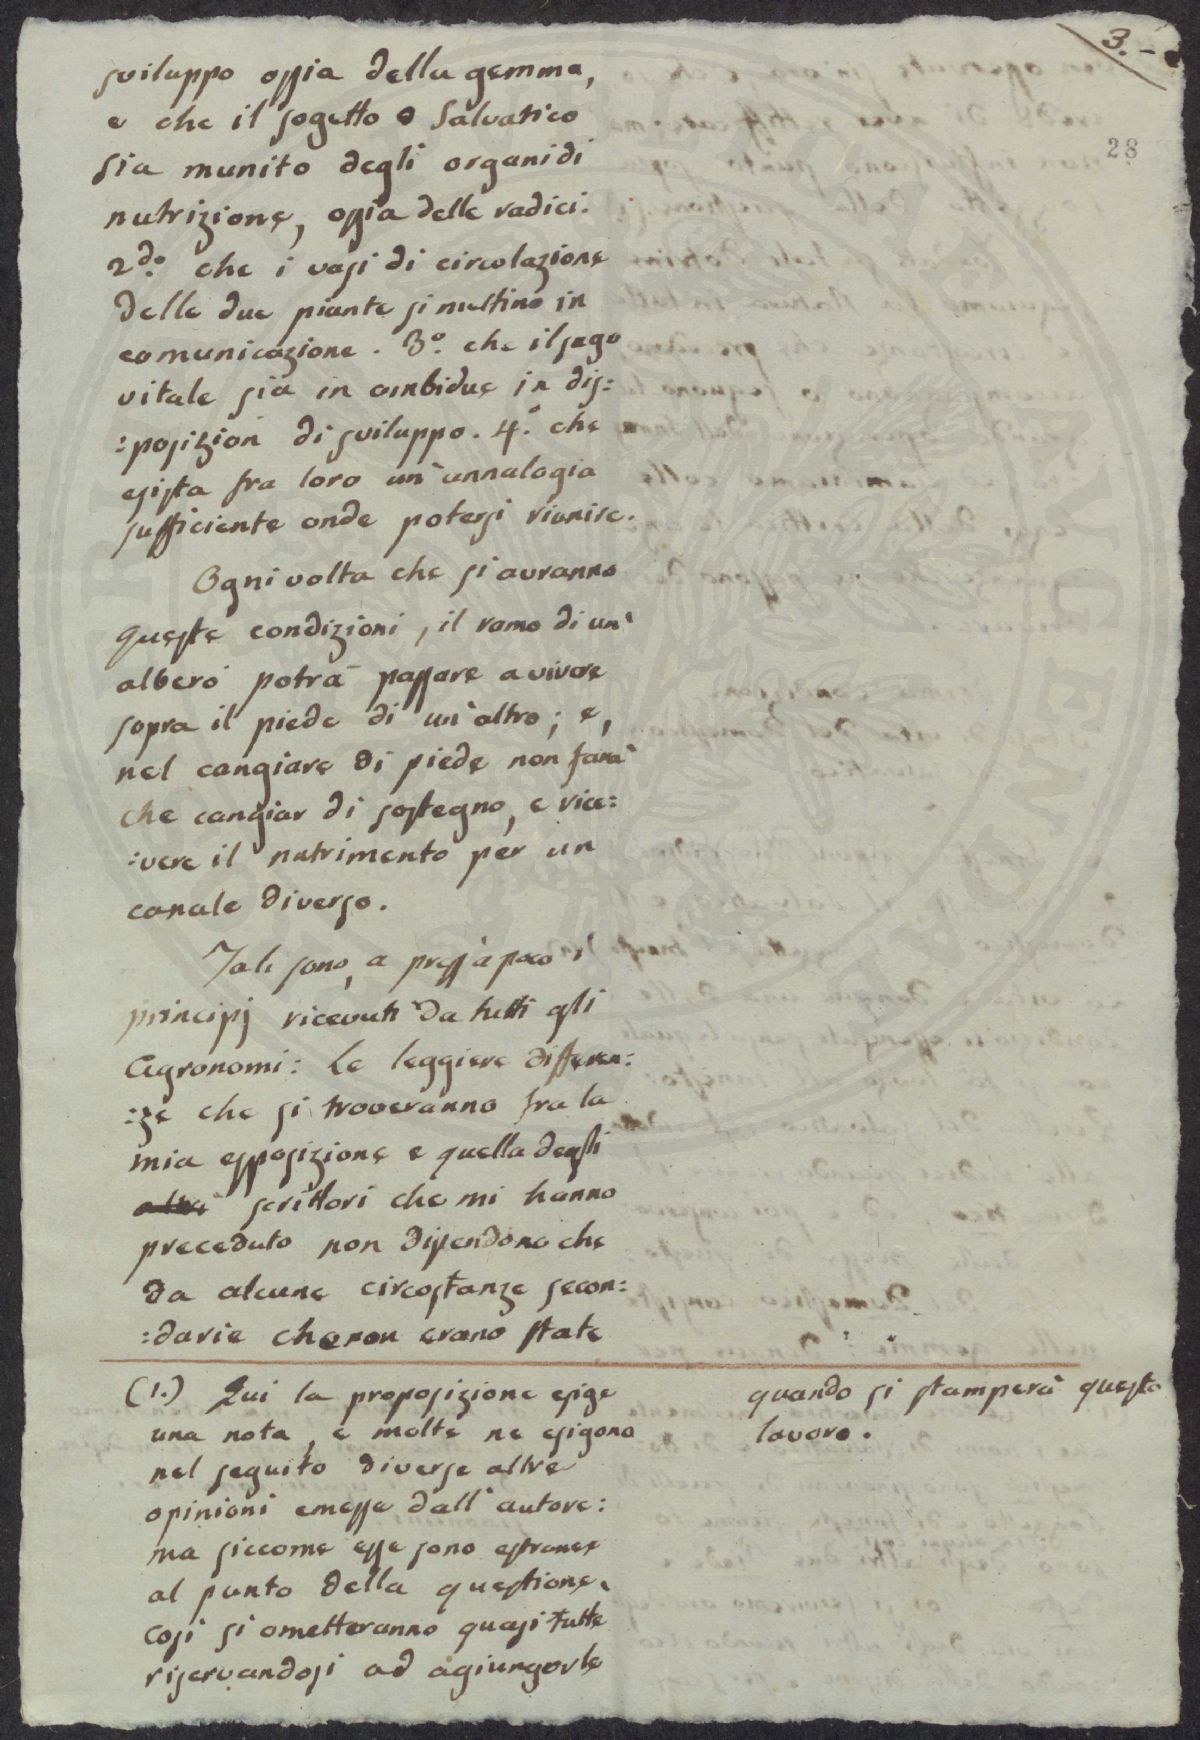 3.
28
sviluppo ossia della gemma,
e che il sogetto o Salvatico
sia munito degli organi di
nutrizione, ossia delle radici.
2.do che i vasi di circolazione
delle due piante si mettino in
comunicazione. 3.o che il sugo
vitale sia in ambidue in dis:
:posizion di sviluppo. 4.o che
esista fra loro un'annalogia
sufficiente onde potersi riunire.
Ogni volta che si avranno
queste condizioni, il ramo di un'
albero potrà passare a vivere
sopra il piede di un'altro; e,
nel cangiare di piede non farà
che cangiar di sostegno, e rice:
:vere il nutrimento per un
canale diverso.
Tali sono, a press'a poco i
principj ricevuti da tutti gli
Agronomi: Le leggiere differen:
:ze che si troveranno fra la
mia esposizione e quella degli
altri scrittori che mi hanno
preceduto non dipendono che
da alcune circostanze secon:
:darie che non erano state
(1.) Qui la proposizione esige
una nota, e molte ne esigono
nel seguito diverse altre
opinioni emesse dall'autore:
ma siccome esse sono estranee
al punto della questione,
così si ometteranno quasi tutte
riservandosi ad agiungerle
quando si stamperà questo
lavoro.